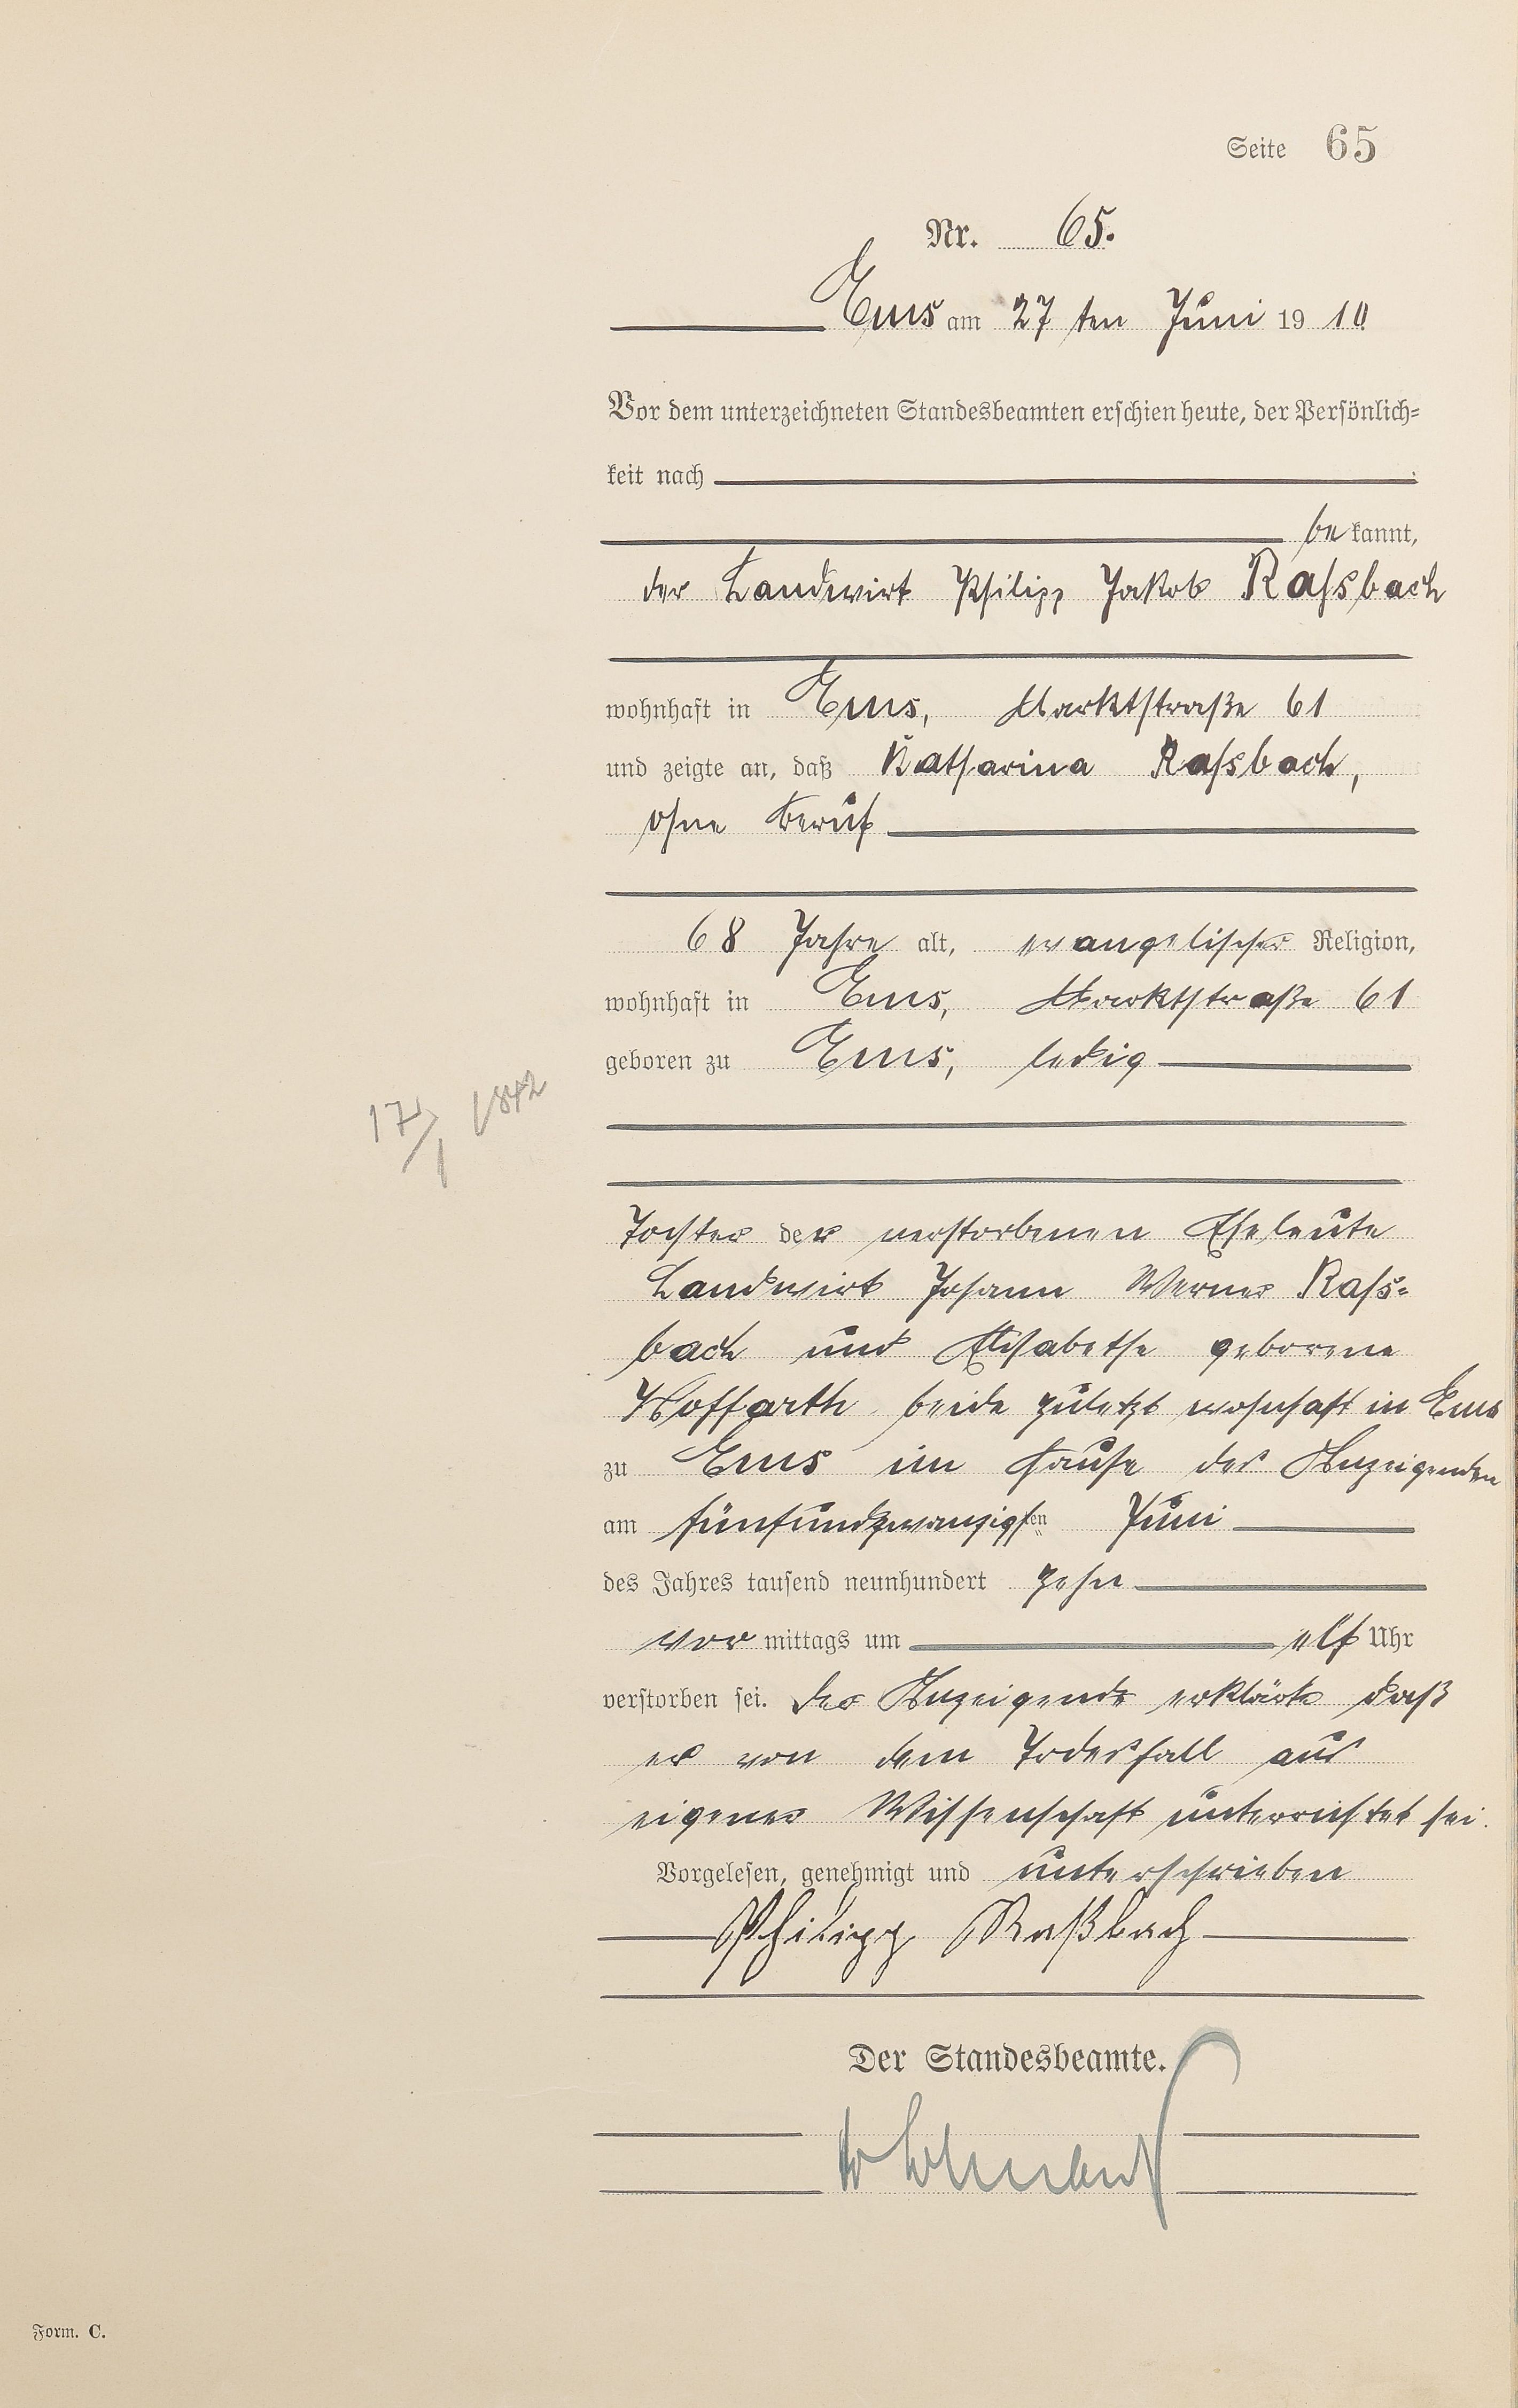 Seite 65
Nr. 65.
Ems am 27 ten Juni 19 10
Vor dem unterzeichneten Standesbeamten erschien heute, der Persönlich=
keit nach
be kannt,
der Landwirt Philipp Jakob Raſsbach
wohnhaft in Ems, Marktstraße 61
und zeigte an, daß Katharina Raſsbach,
ohne Beruf
68 Jahre alt, evangelischer Religion,
wohnhaft in Ems, Marktstraße 61
geboren zu Ems, ledig
17/1 1842
Tochter der verstorbenen Eheleute
Landwirt Johann Werner Raſs=
bach und Elisabethe geborene
Hoffarth beide zuletzt wohnhaft in Ems
zu Ems im Hause des Anzeigenden
am fünfundzwanzigsten Juni
des Jahres tausend neunhundert zehn
vor mittags um elf Uhr
verstorben sei. Der Anzeigende erklärte daß
er von dem Todesfall aus
eigener Wissenschaft unterrichtet sei.
Vorgelesen, genehmigt und unterschrieben
Philipp Raßbach
Der Standesbeamte.
Form. C.